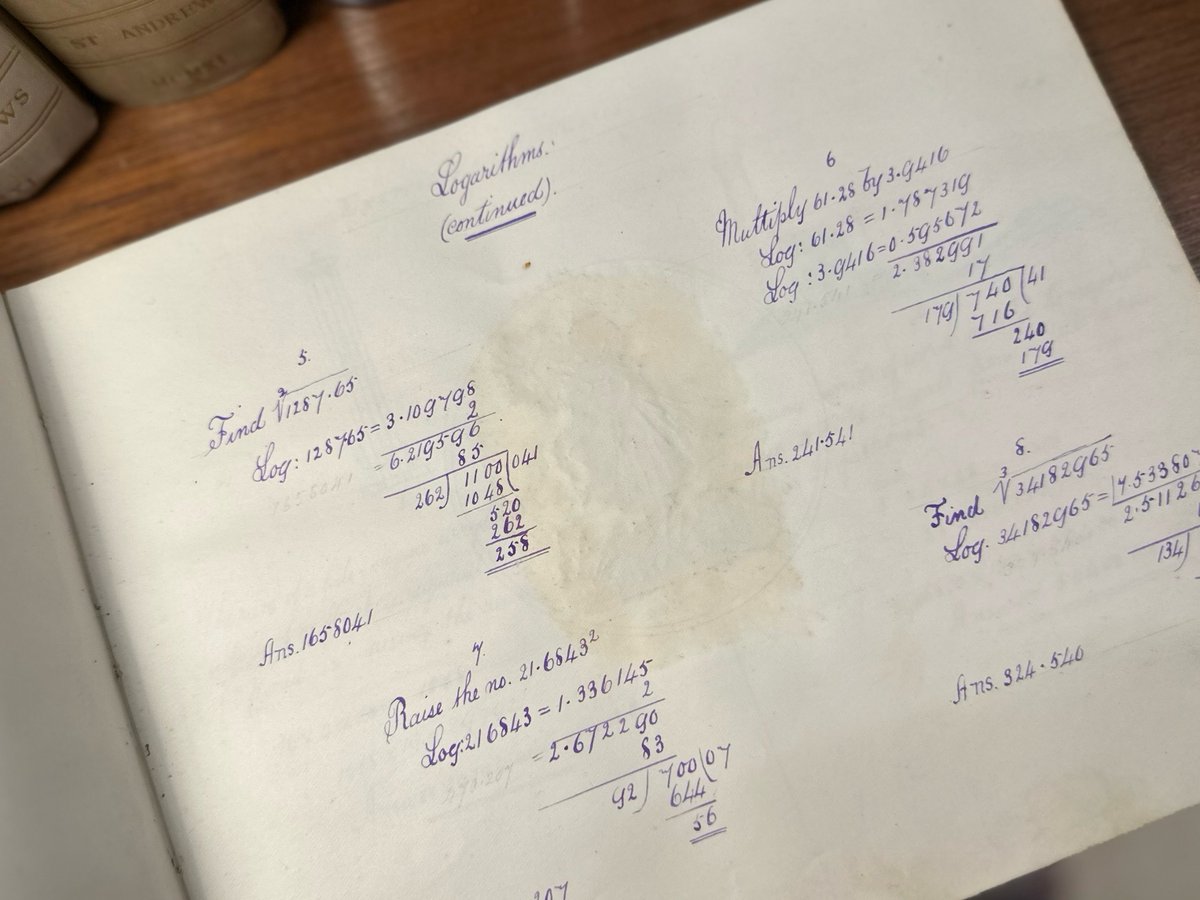 ST ANDREWS
MCMXI
WS
XI
Logarithms:
(continued).
5.
Find ²√1287·65
Log: 128765 = 3·109798
2
= 6·219596
85
262) 1100 (041
1048
520
262
258
Ans. 1658041
6
Multiply 61·28 by 3·9416
Log: 61·28 = 1·787319
Log: 3·9416 = 0·595672
2·382991
17
179) 740 (41
716
240
179
Ans. 241·541
7.
Raise the no. 21·6843²
Log: 216843 = 1·336145
2
= 2·672290
83
92) 700 (07
644
56
207
8.
Find ³√34182965
Log. 34182965 = 7·53380
2·51126
134)
Ans. 324·540